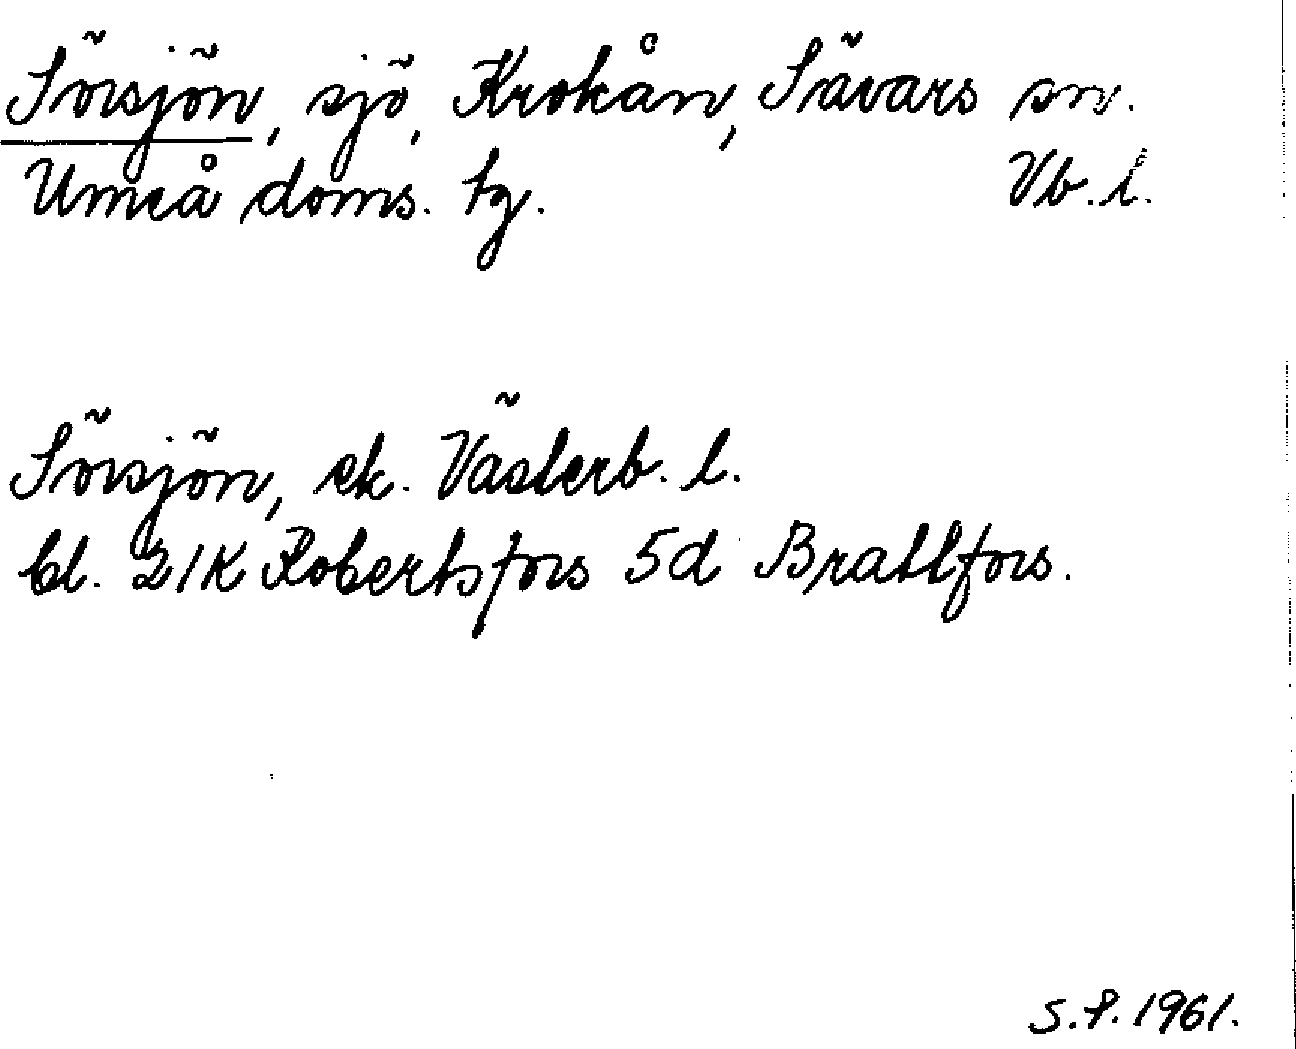 Sörsjön, sjö, Krokån, Sävars sn.
Umeå doms. tg. Vb. l.
Sörsjön, ek. Västerb. l.
bl. 21K Robertsfors 5d Brattfors.
S.P. 1961.